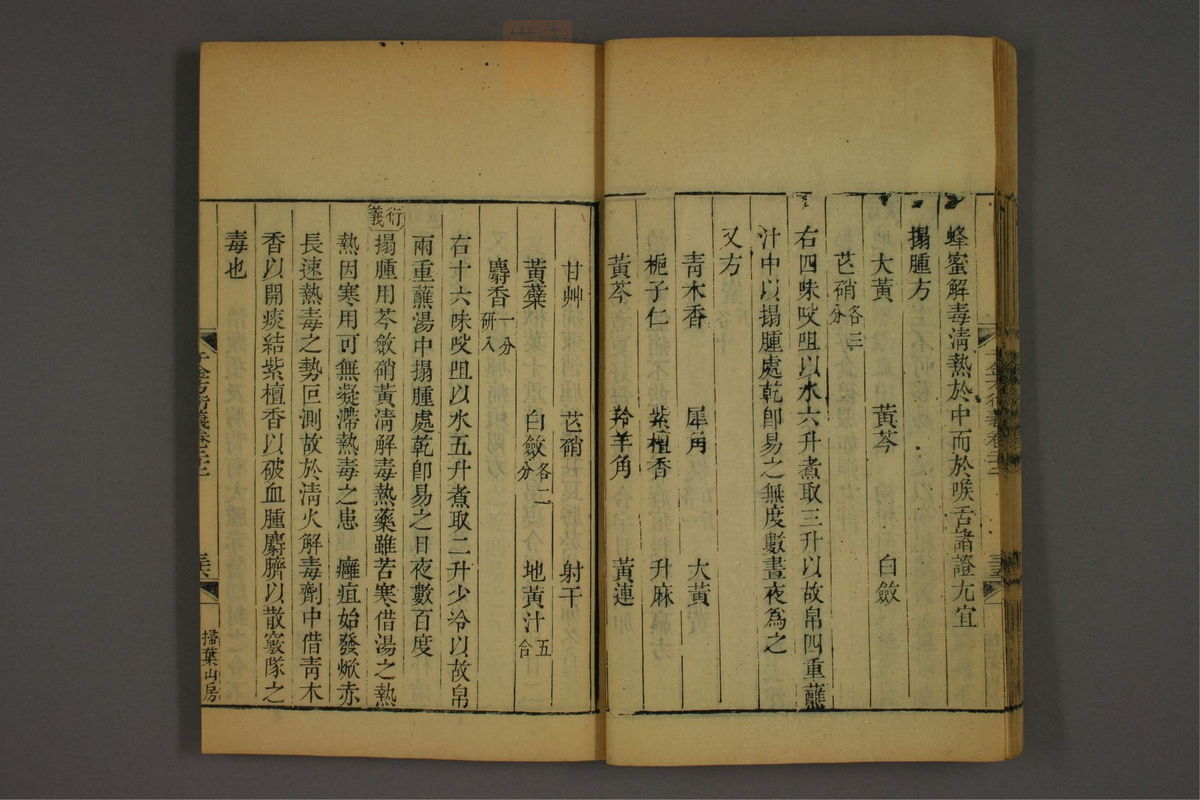 蜂蜜解毒清熱於中而於喉舌諸證尤宜
搨腫方
大黃 黃芩 白斂
芒硝各三分
右四味㕮咀以水六升煮取三升以故帛四重蘸
汁中以搨腫處乾卽易之無度數晝夜為之
又方
靑木香 犀角 大黃
梔子仁 紫檀香 升麻
黃芩 羚羊角 黃連
甘艸 芒硝 射干
黃蘗 白斂各二分 地黃汁五合
麝香一分研入
右十六味㕮咀以水五升煮取二升少冷以故帛
兩重蘸湯中搨腫處乾卽易之日夜數百度
衍義
搨腫用芩斂硝黃清解毒熱藥雖苦寒借湯之熱
熱因寒用可無凝滯熱毒之患 癰疽始發焮赤
長速熱毒之勢叵測故於清火解毒劑中借靑木
香以開痰結紫檀香以破血腫麝臍以散竅隊之
毒也
千金方衍義卷二十二
掃葉山房